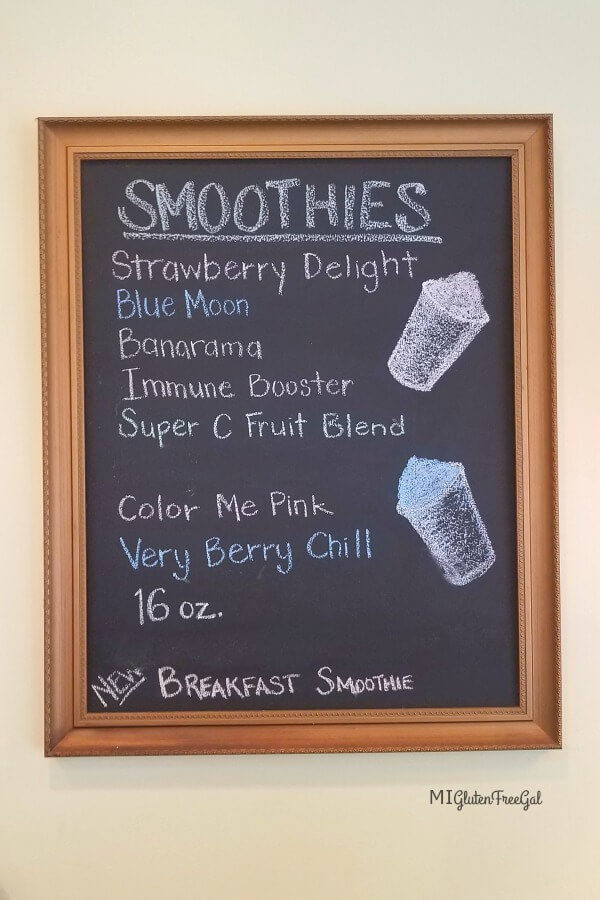 SMOOTHIES
Strawberry Delight
Blue Moon
Banarama
Immune Booster
Super C Fruit Blend
Color Me Pink
Very Berry Chill
16 oz.
NEW BREAKFAST SMOOTHIE
MIGlutenFreeGal